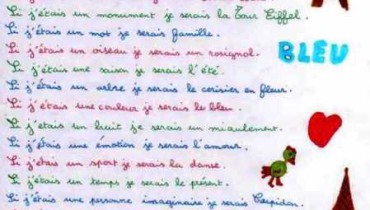 Si j'étais un monument je serais la Tour Eiffel.
Si j'étais un mot je serais famille.
Si j'étais un oiseau je serais un rossignol.
BLEU
Si j'étais une saison je serais l'été.
Si j'étais un arbre je serais le cerisier en fleur.
Si j'étais une couleur je serais le bleu.
Si j'étais un bruit je serais un miaulement.
Si j'étais une émotion je serais l'amour.
Si j'étais un sport je serais la danse.
Si j'étais un temps je serais le présent.
Si j'étais une personne imaginaire je serais Cupidon.